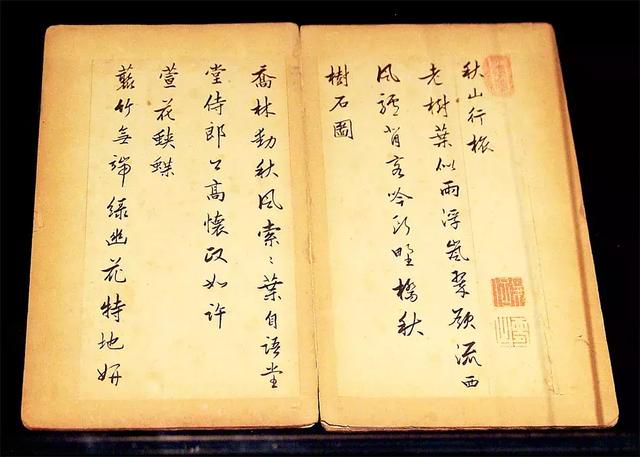 秋山行旅
老樹葉似雨浮嵐翠欲流西
風驢背客吟斷野橋秋
樹石圖
喬林動秋風索〻葉自語堂
堂侍郎公高懷政如許
萱花蛺蝶
藂竹無端綠幽花特地妍